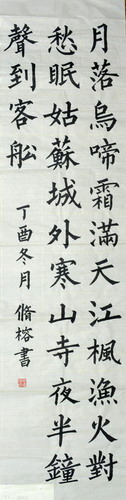 月落烏啼霜滿天江楓漁火對
愁眠姑蘇城外寒山寺夜半鐘
聲到客船
丁酉冬月脩榕書